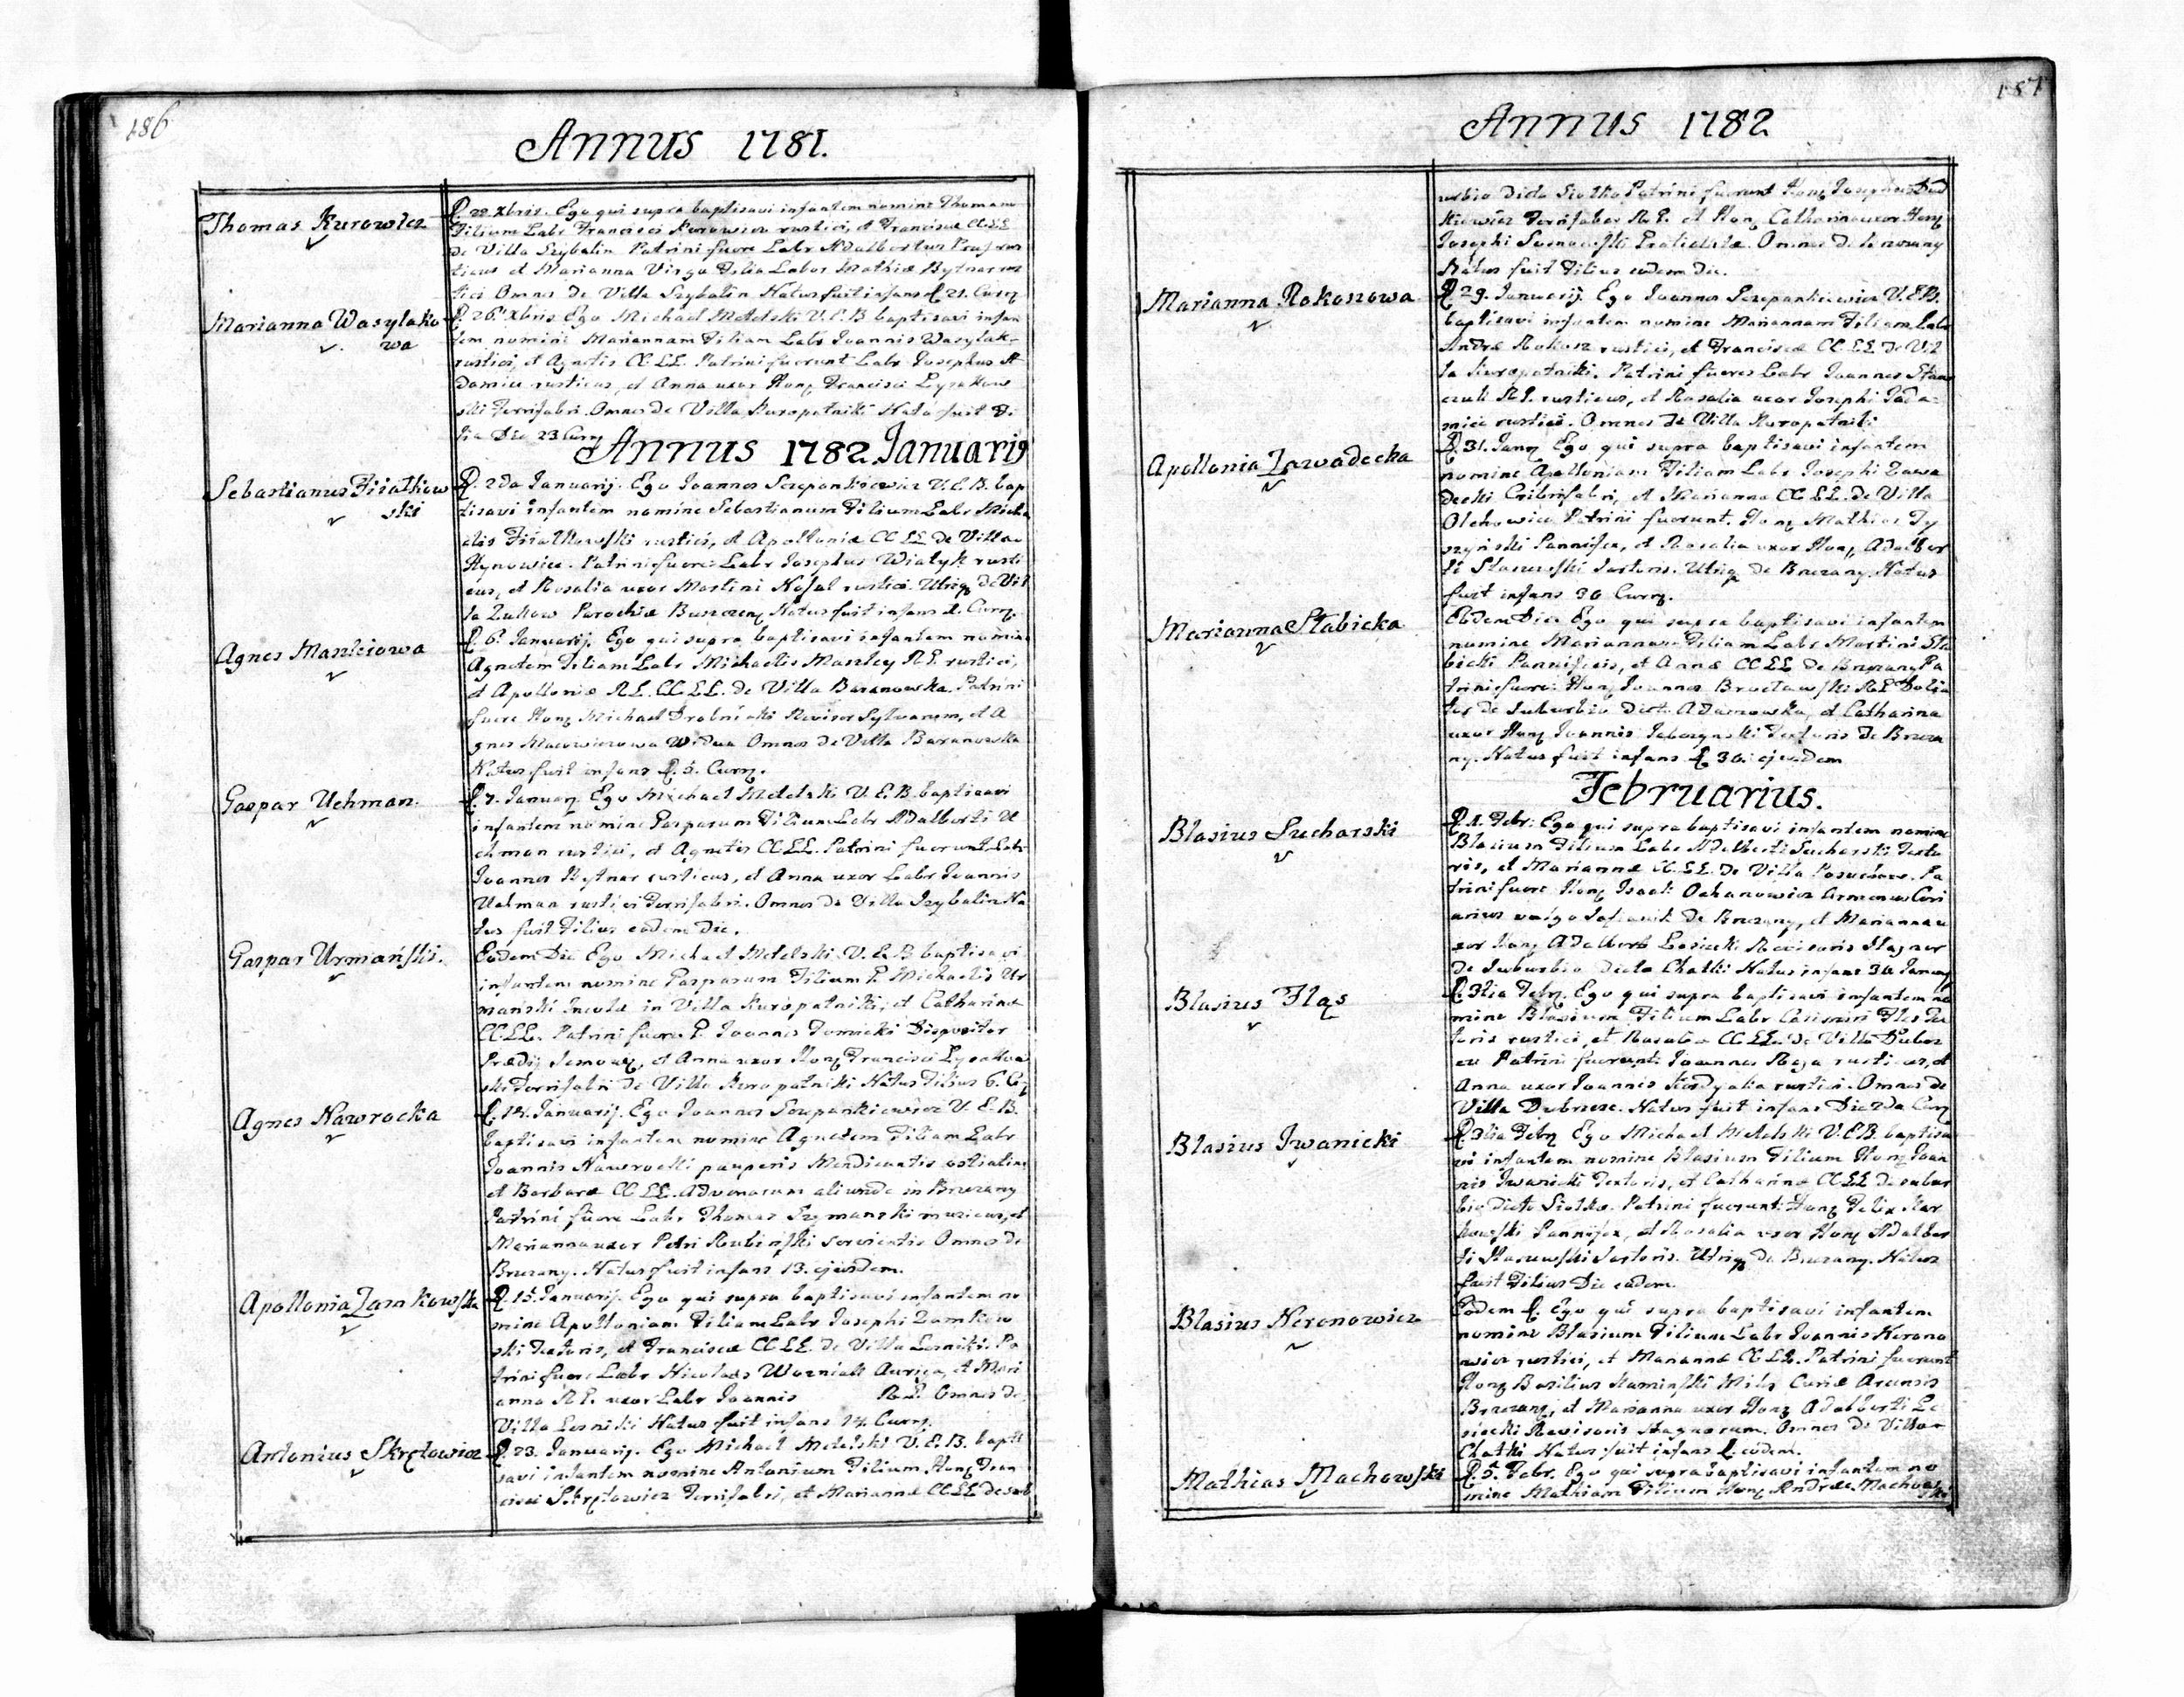 186
Annus 1781.
Thomas Kurowicz
D. 22 Xbris. Ego qui supra baptisavi infantem nomine Thomam
Filium Labr Francisci Kurowicz rustici, et Franciscae CCLL
de Villa Szybalin Patrini fuere Labr Adalbertus Prus rus
ticus et Marianna Virgo Filia Labor Mathiae Bytnar rus
tici Omnes de Villa Szybalin Natus fuit infans D. 21. Curr
Marianna Wasylako
wa
D. 26 Xbris Ego Michael Metelski V. E. B baptisavi infan
tem nomine Mariannam Filiam Labr Joannis Wasylak
rustici, et Agnetis CC.LL. Patrini fuerunt Labr Josephus A
damice rusticus, et Anna uxor Hon Francisci Lysakow
ski Ferrifabri. Omnes de Villa Kuropatniki Nata fuit Fi
lia Die 23 Curr
Annus 1782. Januarij
Sebastianus Fijałkow
ski
D. 2da Januarij. Ego Joannes Szczepankiewicz V. E. B. bap
tisavi infantem nomine Sebastianum Filium Labr Micha
elis Fijałkowski rustici, et Apolloniae CCLL de Villa
Hynowice. Patrini fuere Labr Josephus Wiatyk rusti
cus, et Rosalia uxor Martini Nosal rustici. Utriq de Vil
la Zukow Parochiae Buszczen Natus fuit infans 1. Curr.
Agnes Maszleiowa
D. 6. Januarij. Ego qui supra baptisavi infantem nomine
Agnetem Filiam Labr Michaelis Maszley R.L. rustici,
et Apolloniae R.L. CC.LL. de Villa Baranowka. Patrini
fuere Hon Michael Drobnicki Revisor Sylvarum, et A
gnes Macowiczowa Vidua Omnes de Villa Baranowka
Natus fuit infans D. 5. Curr.
Gaspar Uchman.
D. 7. Januar Ego Michael Metelski V. E. B. baptisavi
infantem nomine Gasparum Filium Labr Adalberti U
chman rustici, et Agnetis CC.LL. Patrini fuerunt Labr
Joannes Bytnar rusticus, et Anna uxor Labr Joannis
Uchman rustici Ferrifabri. Omnes de Villa Szybalin Na
tus fuit Filius eadem die.
Gaspar Urmański.
Eodem Die Ego Michael Metelski V. E. B baptisavi
infantem nomine Gasparum Filium P. Michaelis Ur
mański Incolae in Villa Kuropatniki, et Catharinae
CC.LL. Patrini fuere P. Joannes Tomicki Dispositor
Praedij, et Anna uxor Hon Francisci Lysakow
ski Ferrifabri de Villa Kuropatniki Natus Filius 6.
Agnes Nawrocka
D. 14. Januarij. Ego Joannes Szczepankiewicz V. E. B.
baptisavi infantem nomine Agnetem Filiam Labr
Joannis Nawrocki pauperis Mendicantis ostiatim
et Barbarae CC LL. Advenarum aliunde in Brzezany
Patrini fuere Labr Thomas Szymanski musicus, et
Marianna uxor Petri Rubinski servientis Omnes de
Brzezany. Natus fuit infans 13. ejusdem.
Apollonia Zamkowska
D. 15. Januarij. Ego qui supra baptisavi infantem no
mine Apolloniam Filiam Labr Josephi Zamkow
ski Textoris, et Franciscae CCLL. de Villa Lesniki. Pa
trini fuere Labr Nicolaus Wozniak Auriga, et Mari
anna R L. uxor Labr Joannis R.L. Omnes de
Villa Lesniki Natus fuit infans 14. Curr.
Antonius Skrętowicz
D. 23. Januarij. Ego Michael Metelski V. E. B. bapti
savi infantem nomine Antonium Filium Hon Fran
cisci Skrętowicz Ferrifabri, et Mariannae CCLL de sub
187
Annus 1782
urbio dicto Siołko Patrini fuerunt Hon Josephus
kiewicz Ferrifaber R L. et Hon Catharina uxor Hon
Josephi Omnes de Brzezany
Natus fuit Filius eodem die.
Marianna Rokoszowa
D. 29. Januarij. Ego Joannes Szczepankiewicz V. E.B.
baptisavi infantem nomine Mariannam Filiam Labr
Andreae Rokosz rustici, et Franciscae CC.LL de Vil
la Kuropatniki. Patrini fuere Labr Joannes
R L. rusticus, et Rosalia uxor Josephi
rustici. Omnes de Villa Kuropatniki
Apollonia Zawadecka
D. 31. Jan Ego qui supra baptisavi infantem
nomine Apolloniam Filiam Labr Josephi Zawa
decki Cribrifabri, et Marianna CC LL. de Villa
Olchowice Patrini fuerunt. Hon Mathias Ty
szyński Pannifex, et Rosalia uxor Hon Adalber
ti Staszewski Sartoris. Utriq de Brzezany. Natus
fuit infans 30 Curr.
Marianna Słabicka
Eodem Die Ego qui supra baptisavi infantem
nomine Mariannam Filiam Labr Martini Sła
bicki Pannificis, et Annae CC LL de Brzezany Pa
trini fuere: Hon Joannes Brocławski R L Dolia
tor de suburbio dicto Adamowka, et Catharina
uxor Hon Joannis Textoris de Brzeza
ny. Natus fuit infans D. 30. ejusdem
Februarius.
Blasius Sucharski
D. 1. Febr. Ego qui supra baptisavi infantem nomine
Blasium Filium Labr Adalberti Sucharski Texto
ris, et Mariannae CC.LL. de Villa Posuchow. Pa
trini fuere Hon Isaak Ochanowicz Armenus Cori
arius vulgo Safianik de Brzezany, et Marianna u
xor Hon Adalberti Lesiecki Revisoris Stagnor
de Suburbio dicto Chatki Natus infans 30 Januar
Blasius Fląs
D. 3tia Febr. Ego qui supra baptisavi infantem no
mine Blasium Filium Labr Casimiri
rustici, et Rosaliae CCLL. de Villa
Patrini fuerunt: Joannes rusticus, et
Anna uxor Joannis rustici. Omnes de
Villa. Natus fuit infans Die 2da Curr
Blasius Iwanicki
D. 3tia Febr Ego Michael Metelski V.E.B. baptisa
vi infantem nomine Blasium Filium Hon Joan
nis Iwanicki Textoris, et Catharinae CC LL de subur
bio dicto Siołko. Patrini fuerunt: Hon Felix Mar
kowski Pannifex, et Rosalia uxor Hon Adalber
ti Staszewski Sartoris. Utriq de Brzezany. Natus
fuit Filius Die eadem.
Blasius Neronowicz
Eodem D. Ego qui supra baptisavi infantem
nomine Blasium Filium Labr Joannis Nerono
wicz rustici, et Mariannae CC LL. Patrini fuerunt
Hon Basilius Kaminski Miles Curiae Arcensis
Brzezan, et Marianna uxor Hon Adalberti Le
siecki Revisoris Stagnorum. Omnes de Villa
Chatki Natus fuit infans D. eodem.
Mathias Machowski
D. 5. Febr. Ego qui supra baptisavi infantem no
mine Mathiam Filium Hon Andreae Machowski